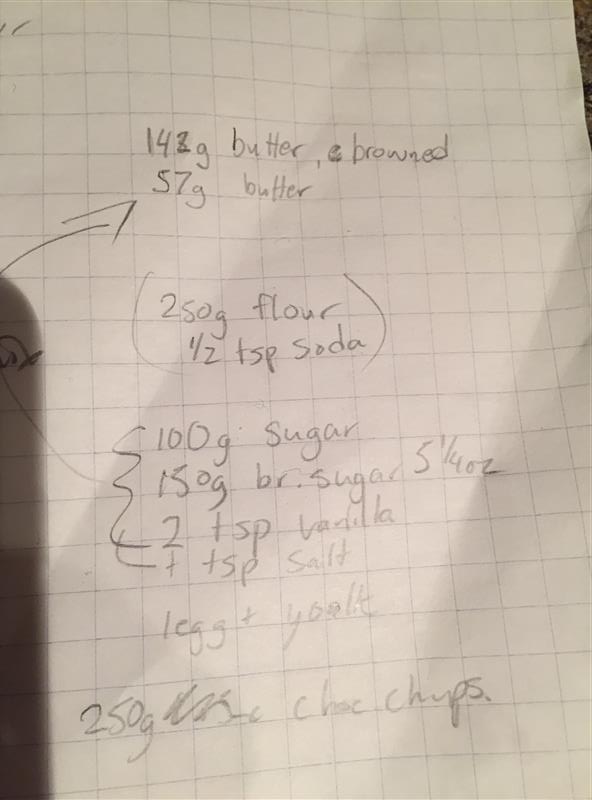 142g butter, browned
57g butter
(250g flour
1/2 tsp soda)
100g sugar
150g br. sugar 5 1/4 oz
2 tsp vanilla
1 tsp salt
1 egg + yoolk
250g choc chups.